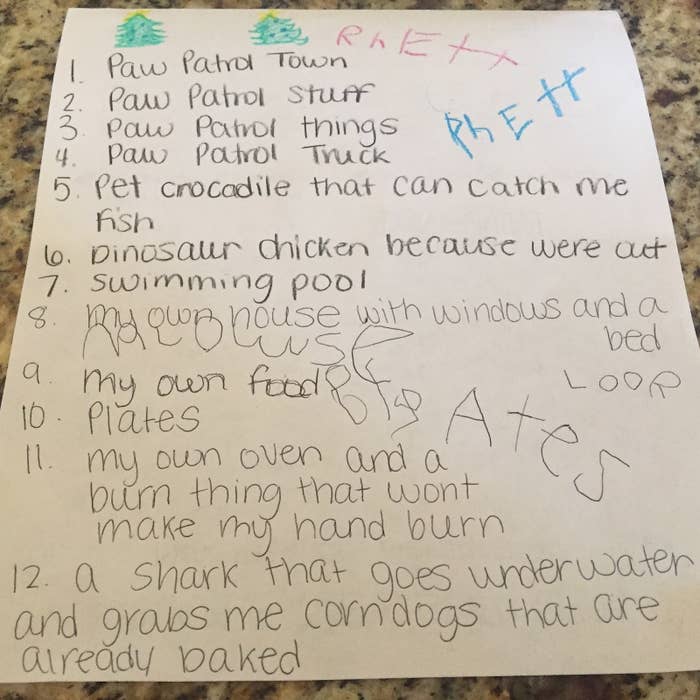 RhEtt
1. Paw Patrol Town
2. Paw Patrol Stuff
RhEtt
3. Paw Patrol things
4. Paw Patrol Truck
5. Pet crocadile that can catch me
fish
6. Dinosaur chicken because were out
7. Swimming pool
8. my own house with windows and a
bed
9. my own food
LOOR
10. Plates
Ates
11. my own oven and a
burn thing that wont
make my hand burn
12. a shark that goes underwater
and grabs me corndogs that are
already baked